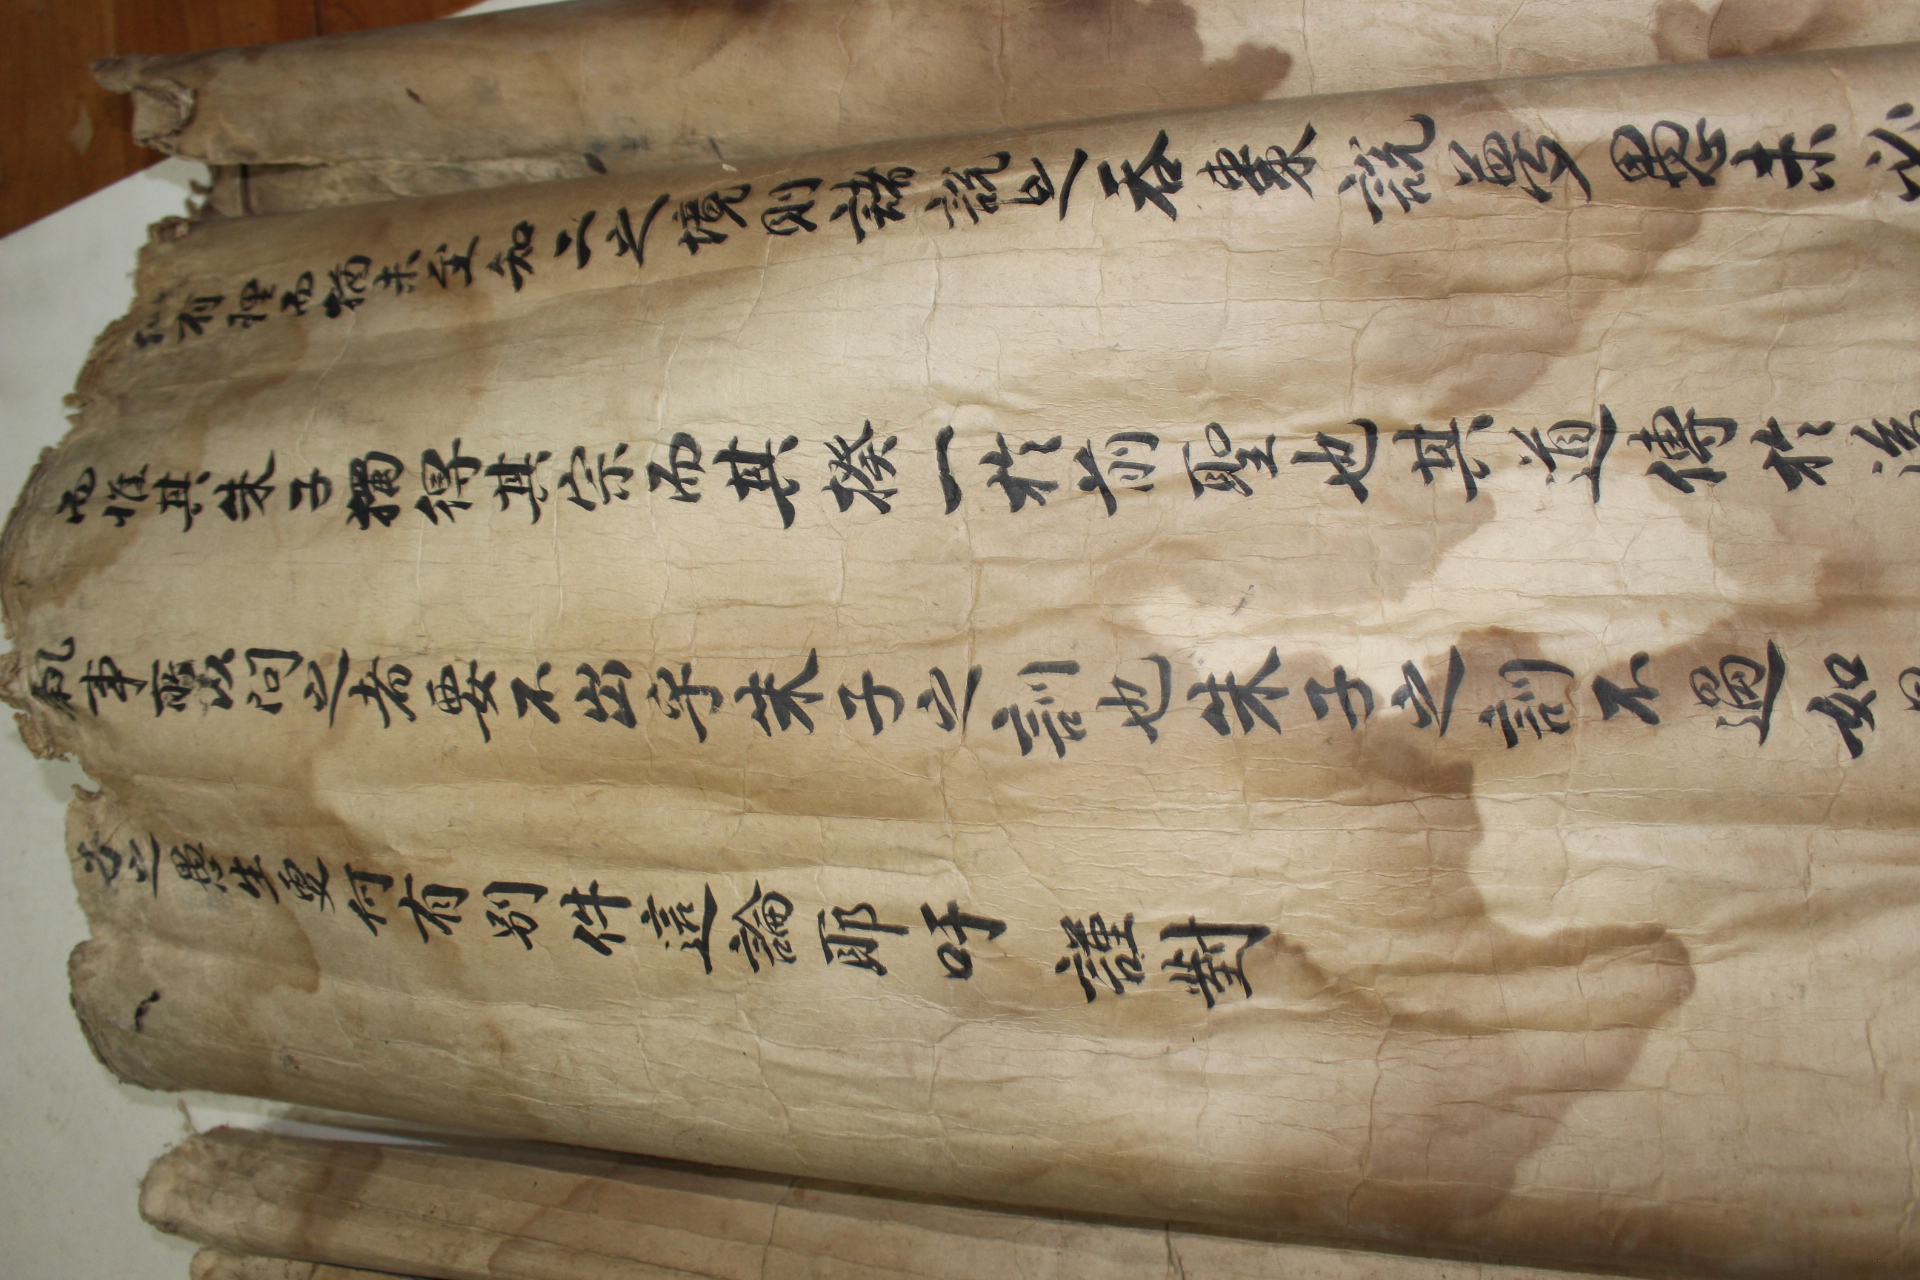 有理而猶未至知二之境則諸說之吞棗說夢愚未必
而惟其朱子獨得其宗而其揆一於前聖也其道傳於後
執事所以問之者要不出乎朱子之訓也朱子之訓不過如是
之愚生更何有別件這論耶吁 謹對